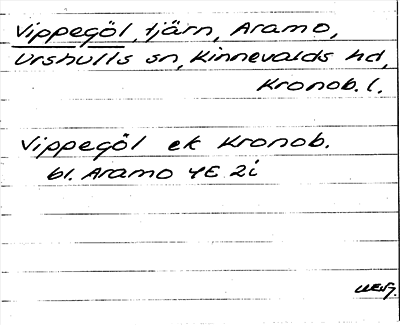 Vippegöl, tjärn, Aramo,
Urshults sn, Kinnevalds hd,
Kronob. l.
Vippegöl ek Kronob.
bl. Aramo 4E 2i